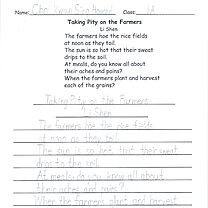 Name: Chn Kwan Sing Howard Class: 1A
Taking Pity on the Farmers
Li Shen
The farmers hoe the rice fields
at noon as they toil.
The sun is so hot that their sweat
drips to the soil.
At meals, do you know all about
their aches and pains?
When the farmers plant and harvest
each of the grains?
Taking Pity on the Farmers
Li Shen
The farmers hoe the rice fields
at noon as they toil.
The sun is so hot, that their sweat
drops to the soil.
At meals, do you know all about
their aches and pains?
When the farmers plant and harvest